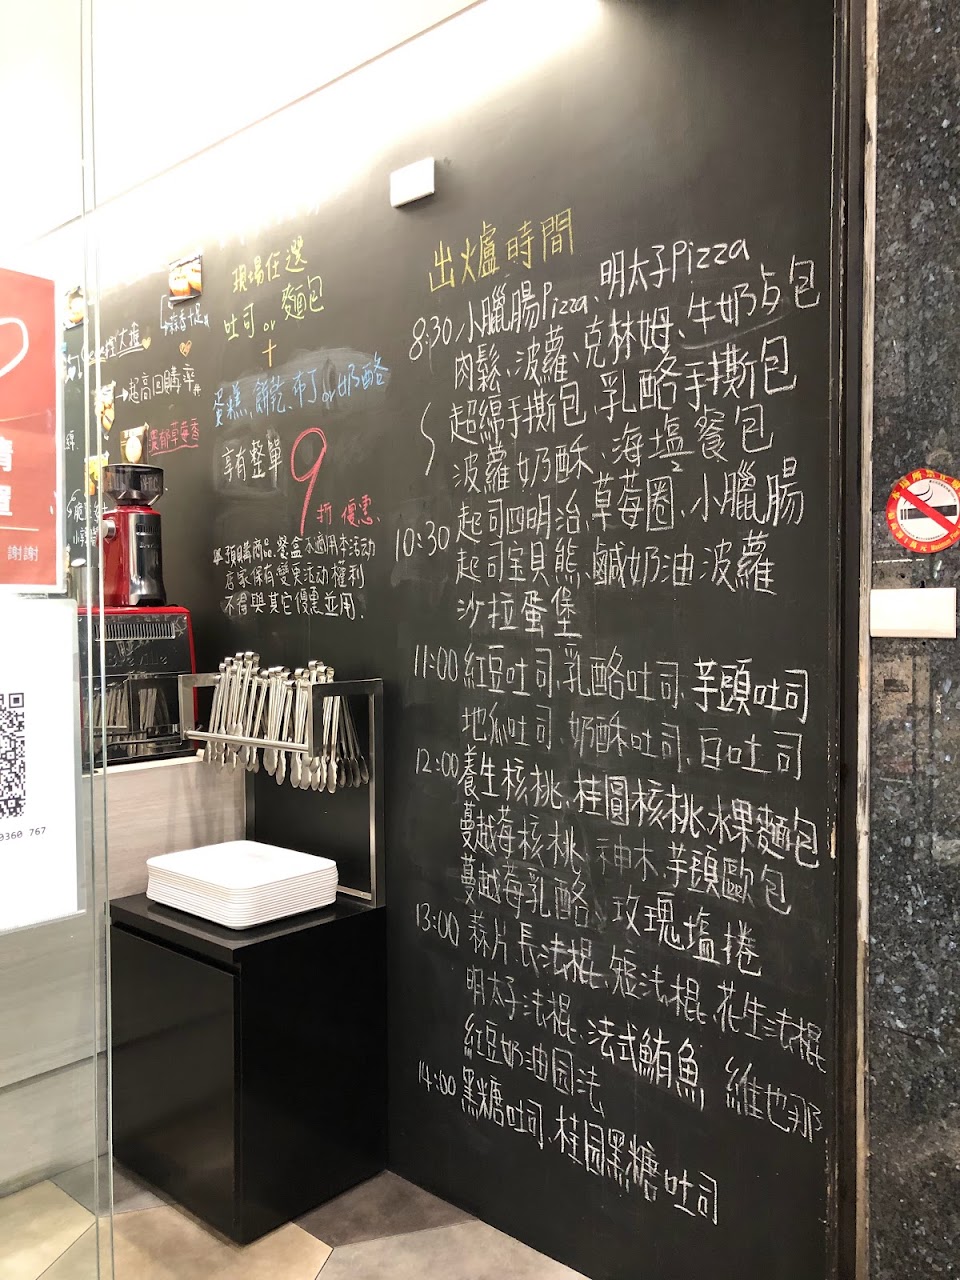 現場任選
吐司 or 麵包
+
蛋糕、餅乾、布丁 or 奶酪
享有整單
9折優惠
預購商品、餐盒不適用本活動
店家保有變更活动權利
不得與其它優惠並用.
超高回購率
大推
謝謝
0360 767
Breville
出火爐時間
8:30 小臘腸Pizza、明太子Pizza
肉鬆、波蘿、克林姆、牛奶占包
超綿手撕包、乳酪手撕包
波蘿奶酥、海塩餐包
10:30 起司四明治、草莓圈、小臘腸
起司宝貝熊、鹹奶油波蘿
沙拉蛋堡
11:00 紅豆吐司、乳酪吐司、芋頭吐司
地瓜吐司、奶酥吐司、白吐司
12:00 養生核桃、桂圓核桃、水果麵包
蔓越莓核桃、柛木、芋頭歐包
蔓越莓乳酪、玫瑰塩捲
13:00 蒜片長法棍、短法棍、花生法棍
明太子法棍、法式鮪魚 維也那
紅豆奶油园法
14:00 黑糖吐司、桂园黑糖吐司